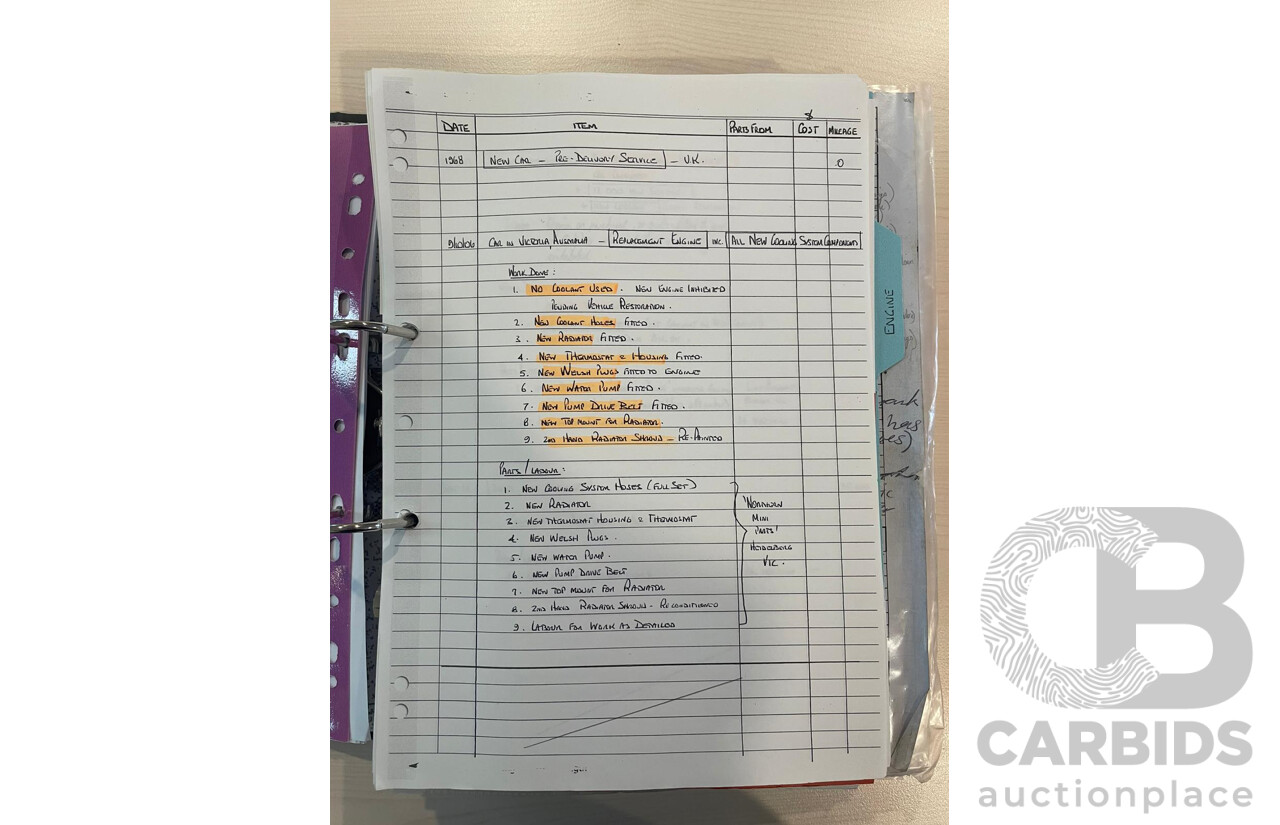 $
DATE ITEM PARTS FROM COST MILEAGE
1968 NEW CAR – PRE-DELIVERY SERVICE – U.K. 0
CAR IN VICTORIA, AUSTRALIA – REPLACEMENT ENGINE INC. ALL NEW COOLING SYSTEM COMPONENTS
WORK DONE:
1. NO COOLANT USED. NEW ENGINE INHIBITED
PENDING VEHICLE RESTORATION.
2. NEW COOLANT HOSES FITTED.
3. NEW RADIATOR FITTED.
4. NEW THERMOSTAT & HOUSING FITTED.
5. NEW WELSH PLUGS FITTED TO ENGINE
6. NEW WATER PUMP FITTED.
7. NEW PUMP DRIVE BELT FITTED.
8. NEW TOP MOUNT FOR RADIATOR.
9. 2ND HAND RADIATOR SHROUD – RE-PAINTED
PARTS / LABOUR:
1. NEW COOLING SYSTEM HOSES (FULL SET)
2. NEW RADIATOR
3. NEW THERMOSTAT HOUSING & THERMOSTAT
4. NEW WELSH PLUGS.
5. NEW WATER PUMP.
6. NEW PUMP DRIVE BELT
7. NEW TOP MOUNT FOR RADIATOR
8. 2ND HAND RADIATOR SHROUD – RECONDITIONED
9. LABOUR FOR WORK AS DETAILED
MINI
PARTS'
HEIDELBERG
VIC.
ENGINE
has
CB
CARBIDS
auctionplace